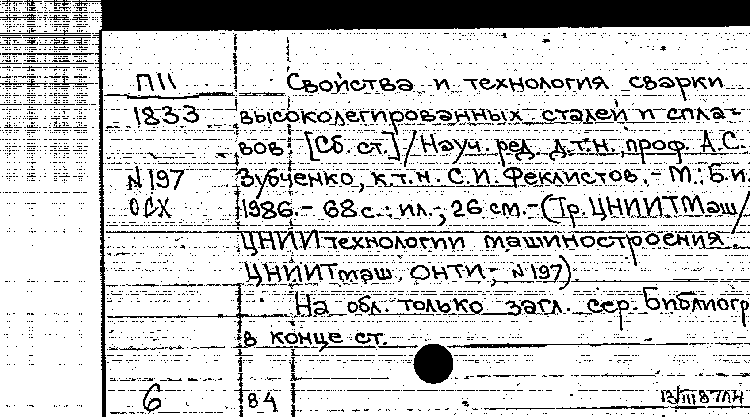 П11 Свойства и технология сварки
1833 высоколегированных сталей и спла-
вов [Сб. ст.] / Науч. ред. д.т.н., проф. А.С.
N197 Зубченко, к.т.н. С.И. Феклистов. - М.: Б.и.
ОСХ 1986. - 68 с.: ил.; 26 см. - (Тр. ЦНИИТМаш/
ЦНИИ технологии машиностроения
ЦНИИТмаш, ОНТИ; N197).
На обл. только загл. сер. Библиогр
в конце ст.
6 84